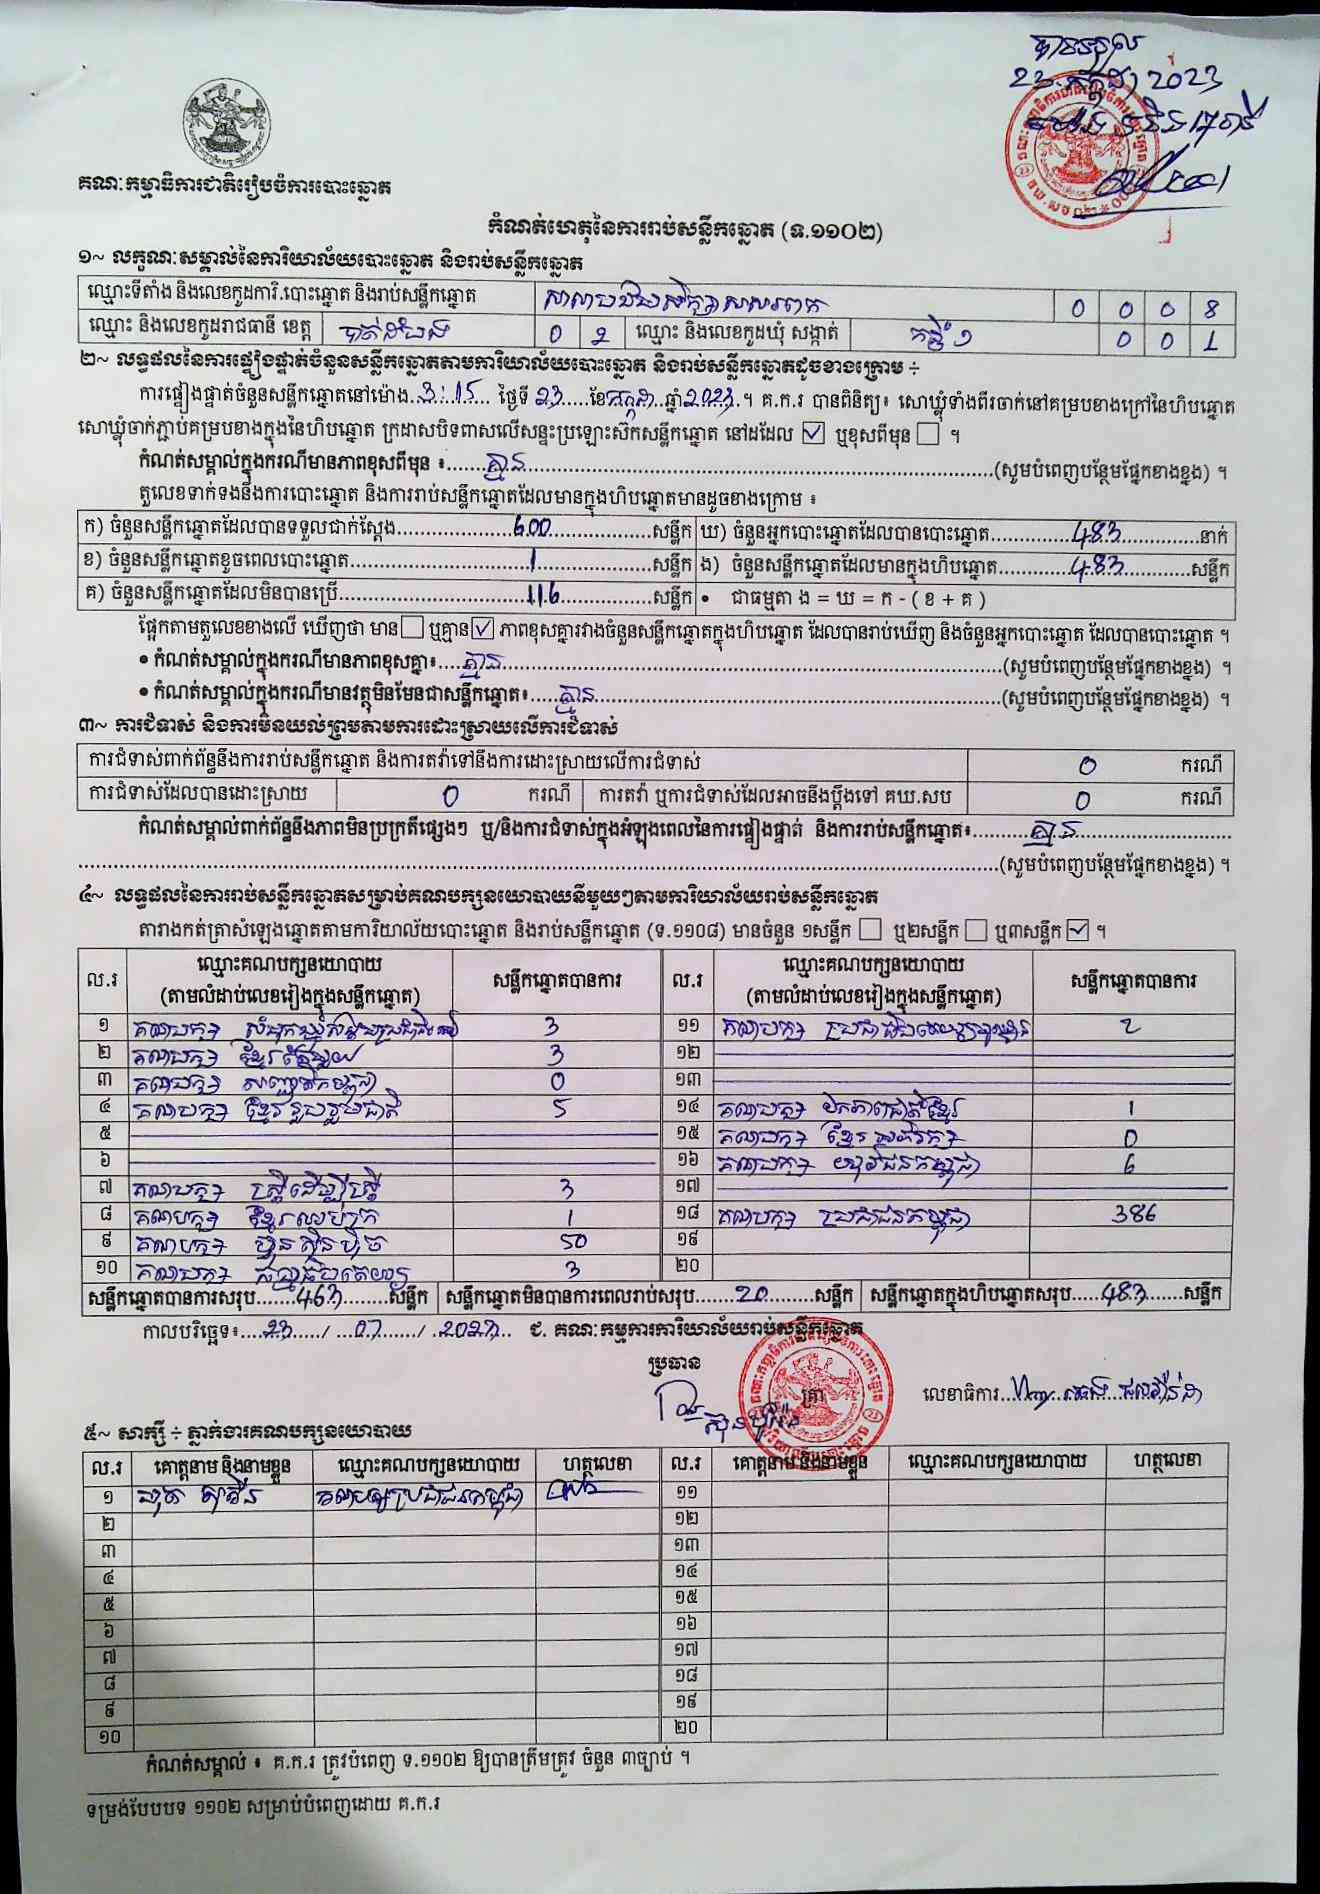 ២៣ កក្កដា 2023
គណៈកម្មាធិការជាតិរៀបចំការបោះឆ្នោត
កំណត់ហេតុនៃការរាប់សន្លឹកឆ្នោត (ទ.១១០២)
១~ លក្ខណៈសម្គាល់នៃការិយាល័យបោះឆ្នោត និងរាប់សន្លឹកឆ្នោត
ឈ្មោះទីតាំង និងលេខកូដការិ.បោះឆ្នោត និងរាប់សន្លឹកឆ្នោត 0 0 0 8
ឈ្មោះ និងលេខកូដរាជធានី ខេត្ត បាត់ដំបង 0 2 ឈ្មោះ និងលេខកូដឃុំ សង្កាត់ 0 0 1
២~ លទ្ធផលនៃការផ្ទៀងផ្ទាត់ចំនួនសន្លឹកឆ្នោតតាមការិយាល័យបោះឆ្នោត និងរាប់សន្លឹកឆ្នោតដូចខាងក្រោម ÷
ការផ្ទៀងផ្ទាត់ចំនួនសន្លឹកឆ្នោតនៅម៉ោង 3:15 ថ្ងៃទី 23 ខែ កក្កដា ឆ្នាំ 2023 ។ គ.ក.រ បានពិនិត្យ៖ សោឃ្លុំទាំងពីរចាក់នៅគម្របខាងក្រៅនៃហិបឆ្នោត
សោឃ្លុំចាក់ភ្ជាប់គម្របខាងក្នុងនៃហិបឆ្នោត ក្រដាសបិទពាសលើសន្ទះប្រឡោះស៊កសន្លឹកឆ្នោត នៅដដែល ☑ ឬខុសពីមុន ☐ ។
កំណត់សម្គាល់ក្នុងករណីមានភាពខុសពីមុន ៖ គ្មាន (សូមបំពេញបន្ថែមផ្នែកខាងខ្នង) ។
តួលេខទាក់ទងនឹងការបោះឆ្នោត និងការរាប់សន្លឹកឆ្នោតដែលមានក្នុងហិបឆ្នោតមានដូចខាងក្រោម ៖
ក) ចំនួនសន្លឹកឆ្នោតដែលបានទទួលជាក់ស្តែង 600 សន្លឹក ឃ) ចំនួនអ្នកបោះឆ្នោតដែលបានបោះឆ្នោត 483 នាក់
ខ) ចំនួនសន្លឹកឆ្នោតខូចពេលបោះឆ្នោត 1 សន្លឹក ង) ចំនួនសន្លឹកឆ្នោតដែលមានក្នុងហិបឆ្នោត 483 សន្លឹក
គ) ចំនួនសន្លឹកឆ្នោតដែលមិនបានប្រើ 116 សន្លឹក • ជាធម្មតា ង = ឃ = ក - ( ខ + គ )
ផ្អែកតាមតួលេខខាងលើ ឃើញថា មាន ☐ ឬគ្មាន ☑ ភាពខុសគ្នារវាងចំនួនសន្លឹកឆ្នោតក្នុងហិបឆ្នោត ដែលបានរាប់ឃើញ និងចំនួនអ្នកបោះឆ្នោត ដែលបានបោះឆ្នោត ។
• កំណត់សម្គាល់ក្នុងករណីមានភាពខុសគ្នា៖ គ្មាន (សូមបំពេញបន្ថែមផ្នែកខាងខ្នង) ។
• កំណត់សម្គាល់ក្នុងករណីមានវត្ថុមិនមែនជាសន្លឹកឆ្នោត៖ គ្មាន (សូមបំពេញបន្ថែមផ្នែកខាងខ្នង) ។
៣~ ការជំទាស់ និងការមិនយល់ព្រមតាមការដោះស្រាយលើការជំទាស់
ការជំទាស់ពាក់ព័ន្ធនឹងការរាប់សន្លឹកឆ្នោត និងការតវ៉ាទៅនឹងការដោះស្រាយលើការជំទាស់ 0 ករណី
ការជំទាស់ដែលបានដោះស្រាយ 0 ករណី ការតវ៉ា ឬការជំទាស់ដែលអាចនឹងប្តឹងទៅ គឃ.សប 0 ករណី
កំណត់សម្គាល់ពាក់ព័ន្ធនឹងភាពមិនប្រក្រតីផ្សេងៗ ឬ/និងការជំទាស់ក្នុងអំឡុងពេលនៃការផ្ទៀងផ្ទាត់ និងការរាប់សន្លឹកឆ្នោត៖ គ្មាន
(សូមបំពេញបន្ថែមផ្នែកខាងខ្នង) ។
៤~ លទ្ធផលនៃការរាប់សន្លឹកឆ្នោតសម្រាប់គណបក្សនយោបាយនីមួយៗតាមការិយាល័យរាប់សន្លឹកឆ្នោត
តារាងកត់ត្រាសំឡេងឆ្នោតតាមការិយាល័យបោះឆ្នោត និងរាប់សន្លឹកឆ្នោត (ទ.១១០៨) មានចំនួន ១សន្លឹក ☐ ឬ២សន្លឹក ☐ ឬ៣សន្លឹក ☑ ។
ល.រ ឈ្មោះគណបក្សនយោបាយ (តាមលំដាប់លេខរៀងក្នុងសន្លឹកឆ្នោត) សន្លឹកឆ្នោតបានការ ល.រ ឈ្មោះគណបក្សនយោបាយ (តាមលំដាប់លេខរៀងក្នុងសន្លឹកឆ្នោត) សន្លឹកឆ្នោតបានការ
១ គណបក្ស 3 ១១ គណបក្ស 2
២ គណបក្ស ខ្មែរតែមួយ 3 ១២
៣ គណបក្ស 0 ១៣
៤ គណបក្ស ខ្មែររួបរួមជាតិ 5 ១៤ គណបក្ស ឯកភាពជាតិខ្មែរ 1
៥ ១៥ គណបក្ស ខ្មែរ 0
៦ ១៦ គណបក្ស យុវជនកម្ពុជា 6
៧ គណបក្ស ស្ត្រីដើម្បីស្ត្រី 3 ១៧
៨ គណបក្ស ខ្មែរឈប់ក្រ 1 ១៨ គណបក្ស ប្រជាជនកម្ពុជា 386
៩ គណបក្ស ហ៊្វុនស៊ិនប៉ិច 50 ១៩
១០ គណបក្ស 3 ២០
សន្លឹកឆ្នោតបានការសរុប 463 សន្លឹក សន្លឹកឆ្នោតមិនបានការពេលរាប់សរុប 20 សន្លឹក សន្លឹកឆ្នោតក្នុងហិបឆ្នោតសរុប 483 សន្លឹក
កាលបរិច្ឆេទ៖ 23 / 07 / 2023 ជ. គណៈកម្មការការិយាល័យរាប់សន្លឹកឆ្នោត
ប្រធាន ត្រា លេខាធិការ
៥~ សាក្សី ÷ ភ្នាក់ងារគណបក្សនយោបាយ
ល.រ គោត្តនាម និងនាមខ្លួន ឈ្មោះគណបក្សនយោបាយ ហត្ថលេខា ល.រ គោត្តនាម និងនាមខ្លួន ឈ្មោះគណបក្សនយោបាយ ហត្ថលេខា
១ គណបក្សប្រជាជនកម្ពុជា ១១
២ ១២
៣ ១៣
៤ ១៤
៥ ១៥
៦ ១៦
៧ ១៧
៨ ១៨
៩ ១៩
១០ ២០
កំណត់សម្គាល់ ៖ គ.ក.រ ត្រូវបំពេញ ទ.១១០២ ឱ្យបានត្រឹមត្រូវ ចំនួន ៣ច្បាប់ ។
ទម្រង់បែបបទ ១១០២ សម្រាប់បំពេញដោយ គ.ក.រ